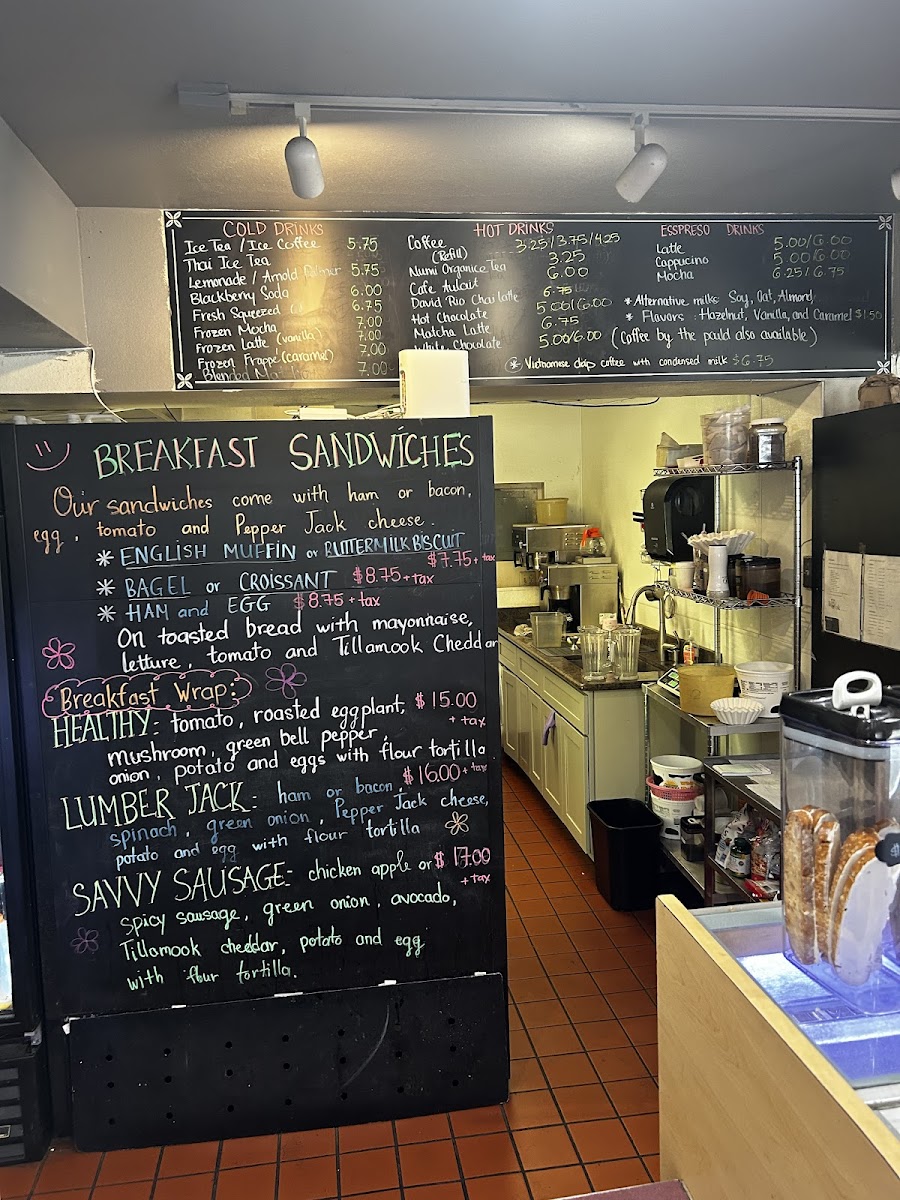 COLD DRINKS
Ice Tea / Ice Coffee 5.75
Thai Ice Tea
Lemonade / Arnold Palmer 5.75
Blackberry Soda 6.00
Fresh Squeezed 6.75
Frozen Mocha 7.00
Frozen Latte (vanilla) 7.00
Frozen Frappe (caramel) 7.00
Blended 7.00
HOT DRINKS
Coffee 3.25/3.75/4.25
(Refill) 3.25
Numi Organice Tea 6.00
Cafe Aulait 6.75
David Rio Chai latte 5.00/6.00
Hot Chocolate 6.75
Matcha Latte 5.00/6.00
White Chocolate
ESSPRESO DRINKS
Latte 5.00/6.00
Cappucino 5.00/6.00
Mocha 6.25/6.75
* Alternative milks: Soy, Oat, Almond
* Flavors: Hazelnut, Vanilla, and Caramel $1.50
(Coffee by the pound also available)
* Vietnamese drip coffee with condensed milk $6.75
BREAKFAST SANDWICHES
Our sandwiches come with ham or bacon,
egg, tomato and Pepper Jack cheese.
* ENGLISH MUFFIN or BUTTERMILK BISCUIT
$7.75 + tax
* BAGEL or CROISSANT $8.75 + tax
* HAM and EGG $8.75 + tax
On toasted bread with mayonnaise,
letture, tomato and Tillamook Cheddar
Breakfast Wrap:
HEALTHY: tomato, roasted eggplant, $15.00
+ tax
mushroom, green bell pepper,
onion, potato and eggs with flour tortilla
$16.00 + tax
LUMBER JACK: ham or bacon,
spinach, green onion, Pepper Jack cheese,
potato and egg with flour tortilla
SAVVY SAUSAGE- chicken apple or $17.00
+ tax
spicy sausage, green onion, avocado,
Tillamook cheddar, potato and egg
with flour tortilla.